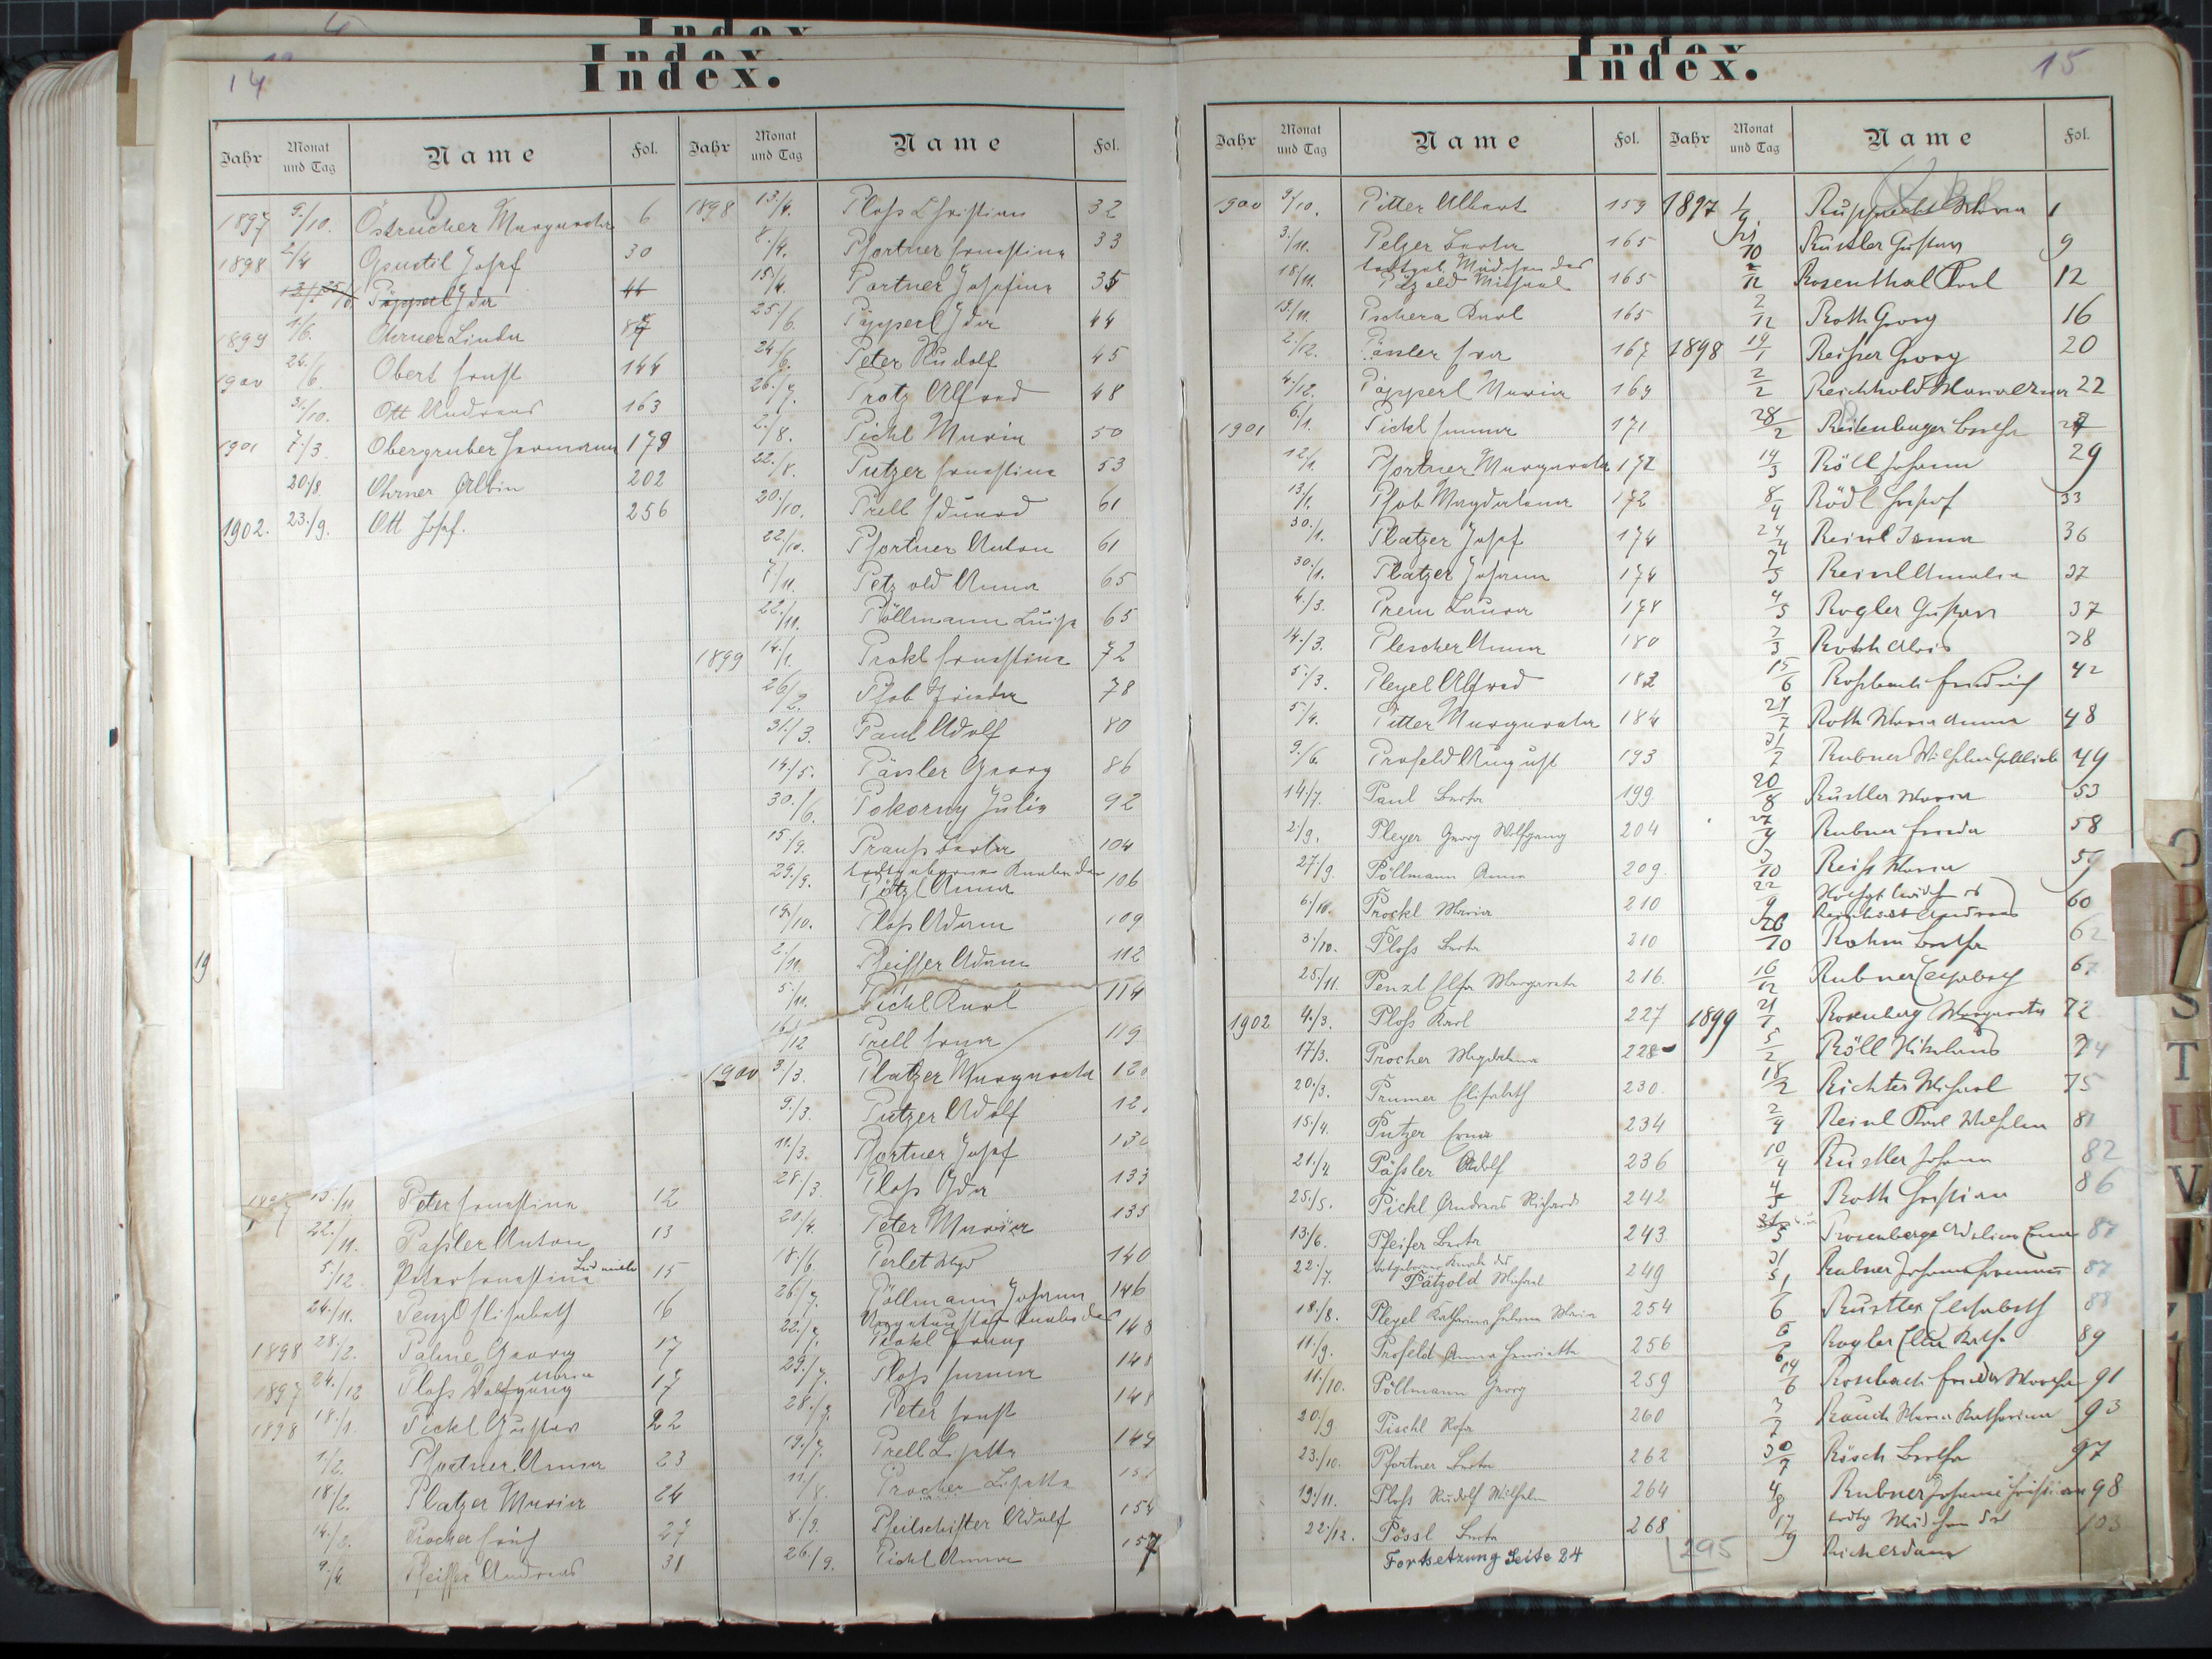 Index.
14
Jahr Monat und Tag Name Fol.
1897 9./10. Östreicher Margareta 6
1898 2/4 Josef 30
Pöpperl Ida 44
1899 1./6. Ohrner Linda 87
1900 26./6. Obert Ernst 144
31./10. Ott Andreas 163
1901 7./3. Obergruber Hermann 179
20/8. Ohrner Albin 202
1902. 23./9. Ott Josef. 256
19
15./11 Peter Ernestine 12
22./11. Paßler Anton 13
5./12. Peter Ernestine Ludmilla 15
24./11. Penzl Elisabeth 16
1898 28./2. Palme Georg 17
1897 24./12 Ploß Wolfgang 17
1898 18./1. Pickl Gustav 22
1./2. Pfortner Anna 23
18./2. Platzer Maria 24
14./2. Procher 27
9./4. Pfeiffer Andreas 31
Jahr Monat und Tag Name Fol.
1898 13./4. Ploß Christian 32
8./4. Pfortner Ernestine 33
15./4. Portner Josefine 35
25./6. Pöpperl Ida 44
24./6. Peter Rudolf 45
26./7. Protz Alfred 48
2./8. Pickl Maria 50
22./8. Putzer Ernestine 53
20./10. Prell Eduard 61
22./10. Pfortner Anton 61
7/11. Petzold Anna 65
22./11. Pöllmann Luise 65
1899 14./1. Prokl Ernestine 72
26/2. Pfob Frieda 78
31./3. Paul Adolf 80
14/5. Pässler Georg 86
30./6. Pokorny Julie 92
15/9. Prauß Berta 104
29./9. todtgeborner Knabe der Pötzl Anna 106
19/10. Ploß Adam 109
2./11. Pfeiffer Adam 112
5./11. Pichl Karl 114
16/12 Prell Erna 119
1900 3./3. Platzer Margareta
9./3. Putzer Adolf
11./3. Pfortner Josef 130
28./3. Ploß Ida 133
20./4. Peter Maria 135
8./6. Perlet 140
26./7. Pöllmann Johann 146
22./7. Knabe des Prokl Franz 148
29./7. Ploß Emma 148
28./7. Peter Ernst 148
19./7. Prell Lisette 149
11/8. Procher Lisette
8./9. Pfeilschifter Adolf 154
26./9. Pichl Anna 157
Index.
15
Jahr Monat und Tag Name Fol.
1900 9/10. Pitter Albert 159
3./11. Pelzer Berta 165
18/11. todtgeb. Mädchen des Pätzold Michael 165
13./11. Pschera Karl 165
2./12. Pässler Eva 167
4./12. Pöpperl Maria 169
1901 6./1. Pickl Emma 171
12/1. Pfortner Margareta 172
13./1. Pfob Magdalena 172
30./1. Platzer Josef 174
30./1. Platzer Johann 174
4./3. Prem Laura 178
14./3. Plescher Anna 180
5./3. Pleyel Alfred 182
5/4. Pitter Margareta 184
9./6. Profeld August 193
14./7. Paul Berta 199
2./9. Pleyer Georg Wolfgang 204
27./9. Pöllmann Anna 209.
6./10. Prockl Maria 210
3./10. Ploß Berta 210
25./11. Penzl Elsa Margareta 216.
1902 4./3. Ploß Karl 227
17./3. Procher Magdalena 228
20./3. Prumer Elisabeth 230.
15./4. Putzer Erna 234
21./4 Päßler Adolf 236
25./5. Pickl Andreas Richard 242
13./6. Pfeifer Berta 243.
22./7. todtgeborner Knabe des Pätzold Michael 249
18./8. Pleyel Katharina Helena Maria 254
11./9. Profeld Anna Henriette 256
11./10. Pöllmann Georg 259
20./9 Pischl Rosa 260
23./10. Pfortner Berta 262
19./11. Ploß Rudolf Wilhelm 264
22./12. Pössl Berta 268
Fortsetzung Seite 24
Jahr Monat und Tag Name Fol.
1897 Rupprecht Maria 1
Rustler Gustav 9
Rosenthal Karl 12
2/12 Roth Georg 16
1898 19/1 Reißer Georg 20
2/2 Reichhold Maria Erna 22
28/2 Reitenberger Bertha
14/3 Röll Johann 29
8/4 Rödl 33
24/4 Reinl Irma 36
Reinl Amalia 37
4/5 Rogler Gustav 37
Roth Alois 38
15/6 Roßbach Friedrich 42
Roth Maria Anna 48
31/7 Rubner Wilhelm Gottlieb 49
20/8 Rustler Maria 53
Rubner Frieda 58
3/10 Reiß Maria 59
22/9 60
26/10 Rahm Bertha 62
16/12 Rubner Elisabeth 67
1899 21/1 Rosenberg Margareta 72
5/2 Röll Nikolaus 74
18/2 Richter Michael 75
2/4 Reinl Karl Wilhelm 81
10/4 Rustler Johann 82
Roth Christian 86
Rosenberger 87
31/5 Rubner Johann 87
1/6 Rustler Elisabeth 88
Rogler Ella Kath. 89
14/6 Rosbach Frieda Martha 91
3/7 Rauch Maria Katharina 93
30/7 Rösch Bertha 97
4/8 Rubner Johann Christian 98
17/9 todtg. Mädchen des Richard 103
295
O
P
S
T
U
V